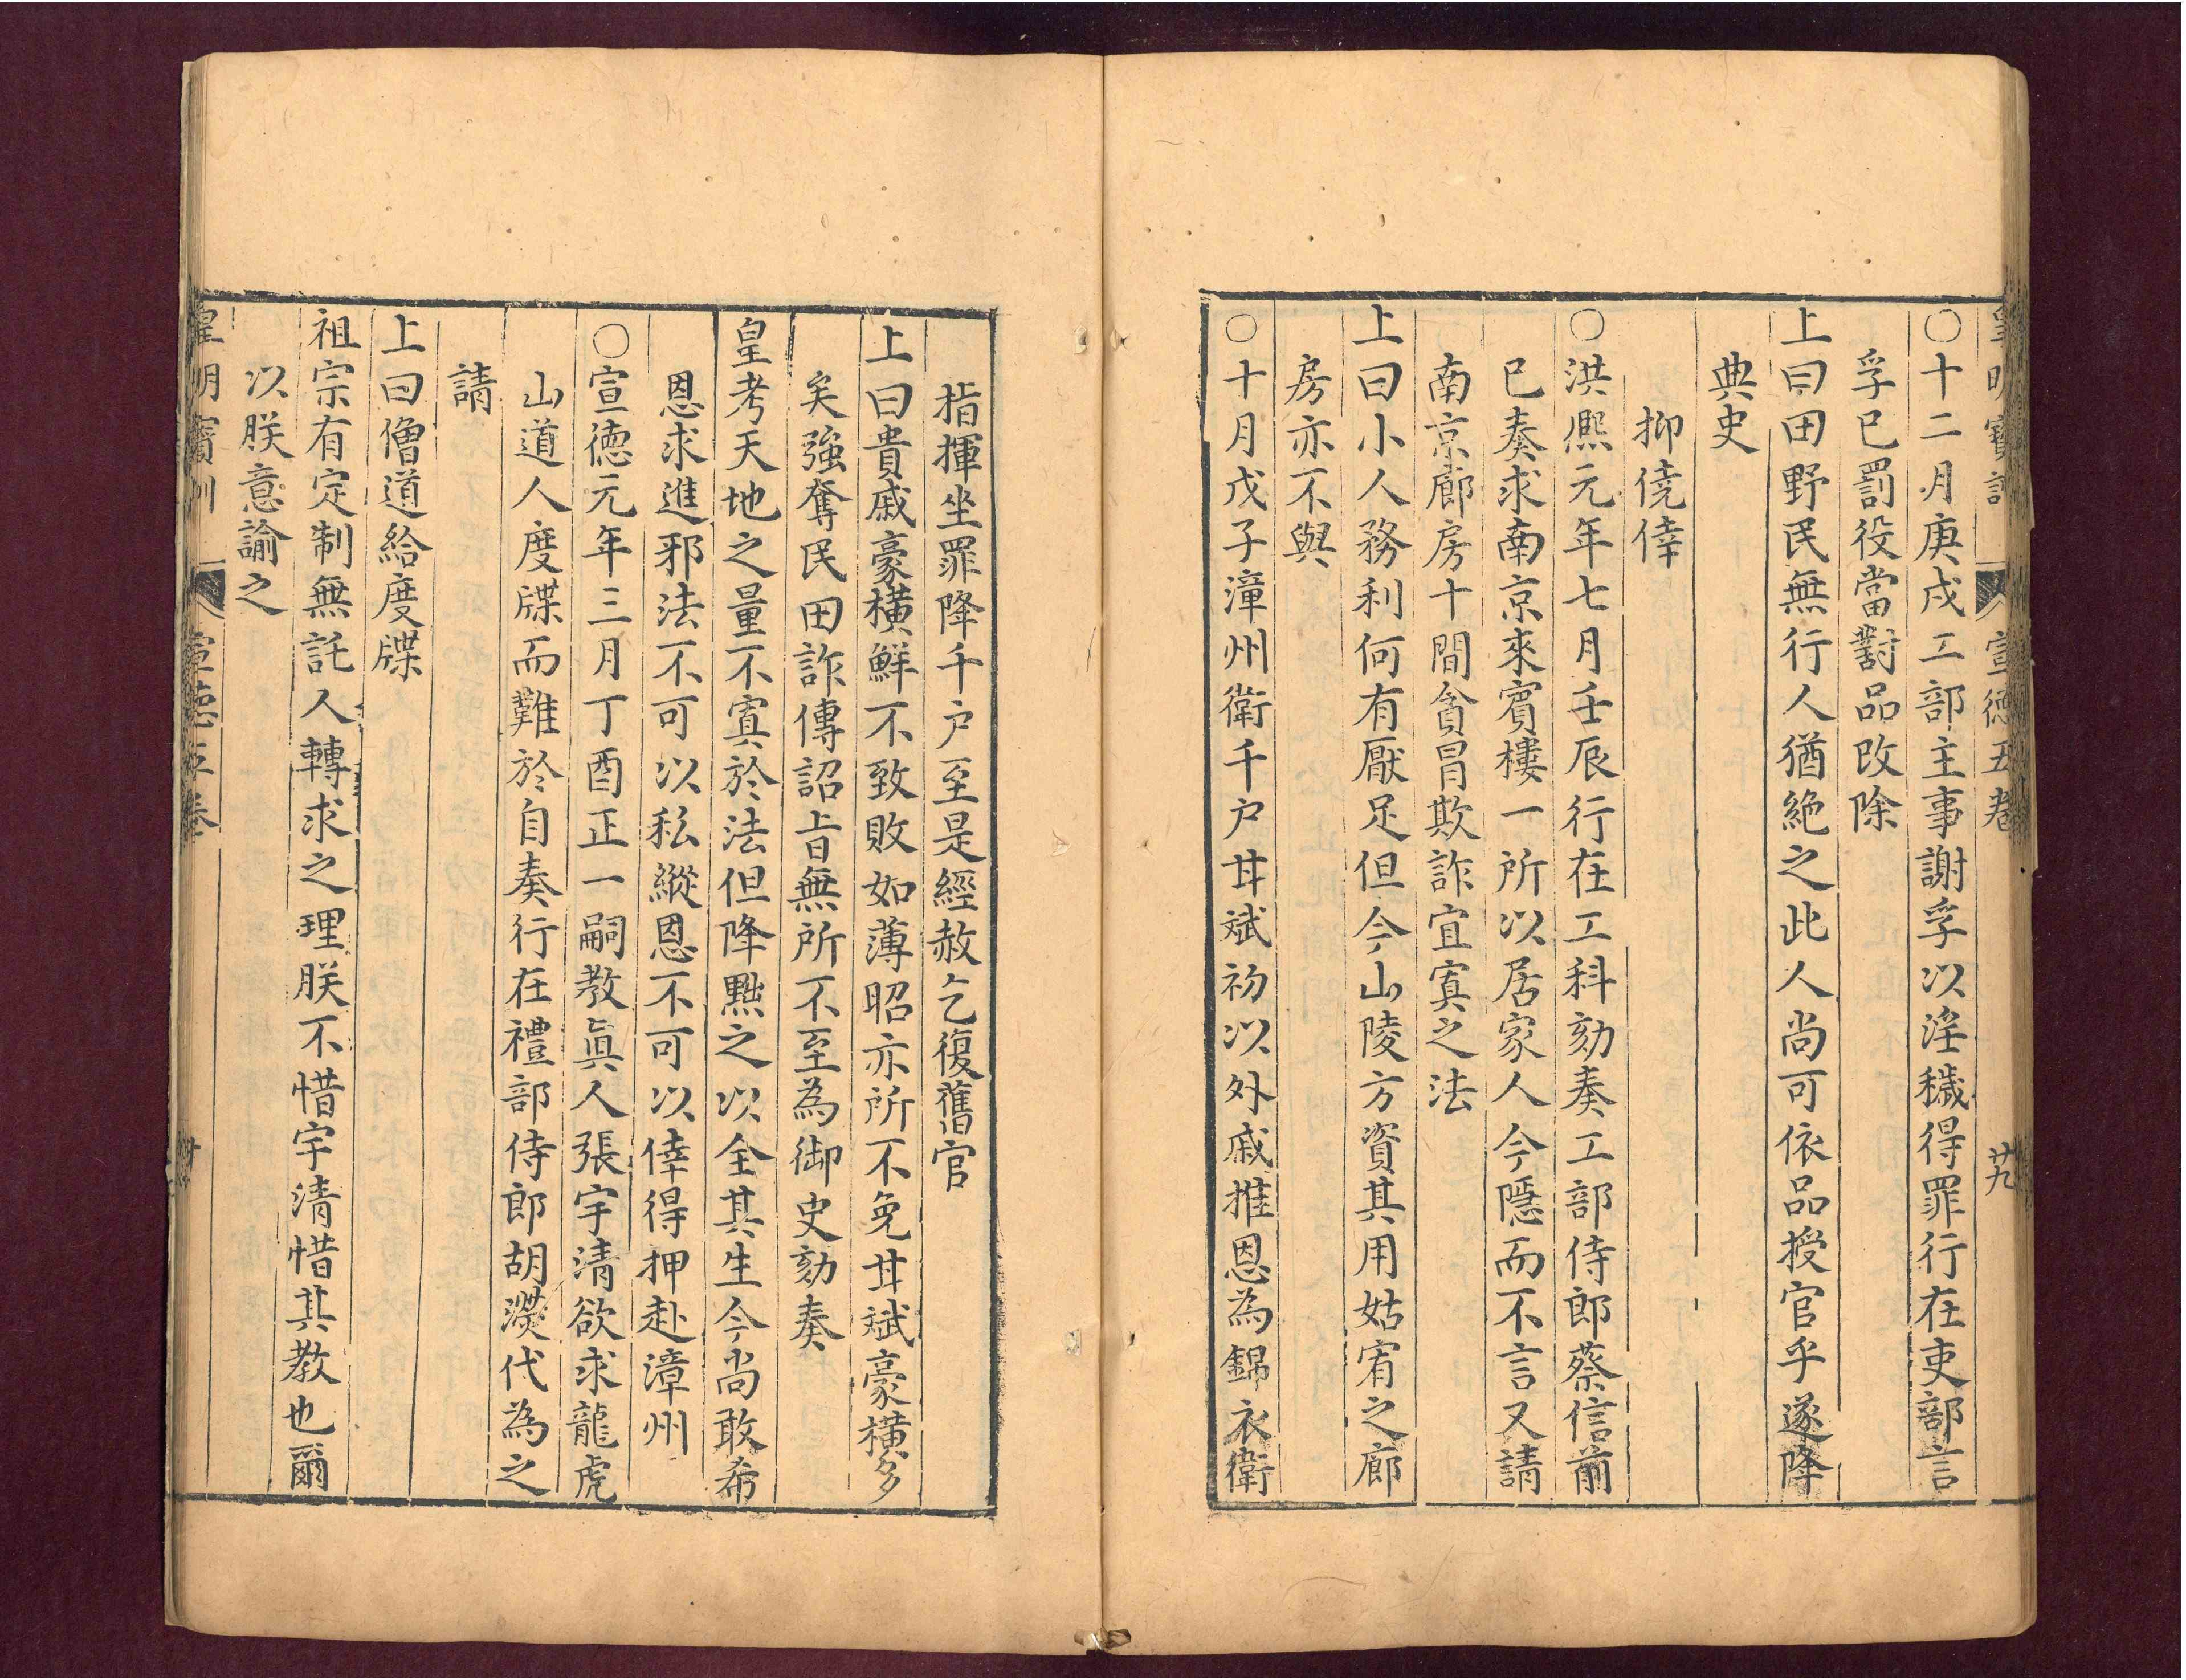 皇明寶訓 宣德五卷 廿九
○十二月庚戌工部主事謝孚以淫穢得罪行在吏部言
孚已罰役當對品改除
上曰田野民無行人猶絶之此人尚可依品授官乎遂降
典史
抑僥倖
○洪熈元年七月壬辰行在工科劾奏工部侍郎蔡信前
已奏求南京來賓樓一所以居家人今隱而不言又請
南京廊房十間貪冒欺詐宜寘之法
上曰小人務利何有厭足但今山陵方資其用姑宥之廊
房亦不與
○十月戊子漳州衛千户甘斌初以外戚推恩為錦衣衛
指揮坐罪降千户至是經赦乞復舊官
上曰貴戚豪橫鮮不致敗如薄昭亦所不免甘斌豪橫多
矣強奪民田詐傳詔旨無所不至為御史劾奏
皇考天地之量不寘於法但降黜之以全其生今尚敢希
恩求進邪法不可以私縱恩不可以倖得押赴漳州
○宣德元年三月丁酉正一嗣教眞人張宇清欲求龍虎
山道人度牒而難於自奏行在禮部侍郎胡濙代為之
請
上曰僧道給度牒
祖宗有定制無託人轉求之理朕不惜宇清惜其教也爾
以朕意諭之
皇明寶訓 宣德五卷